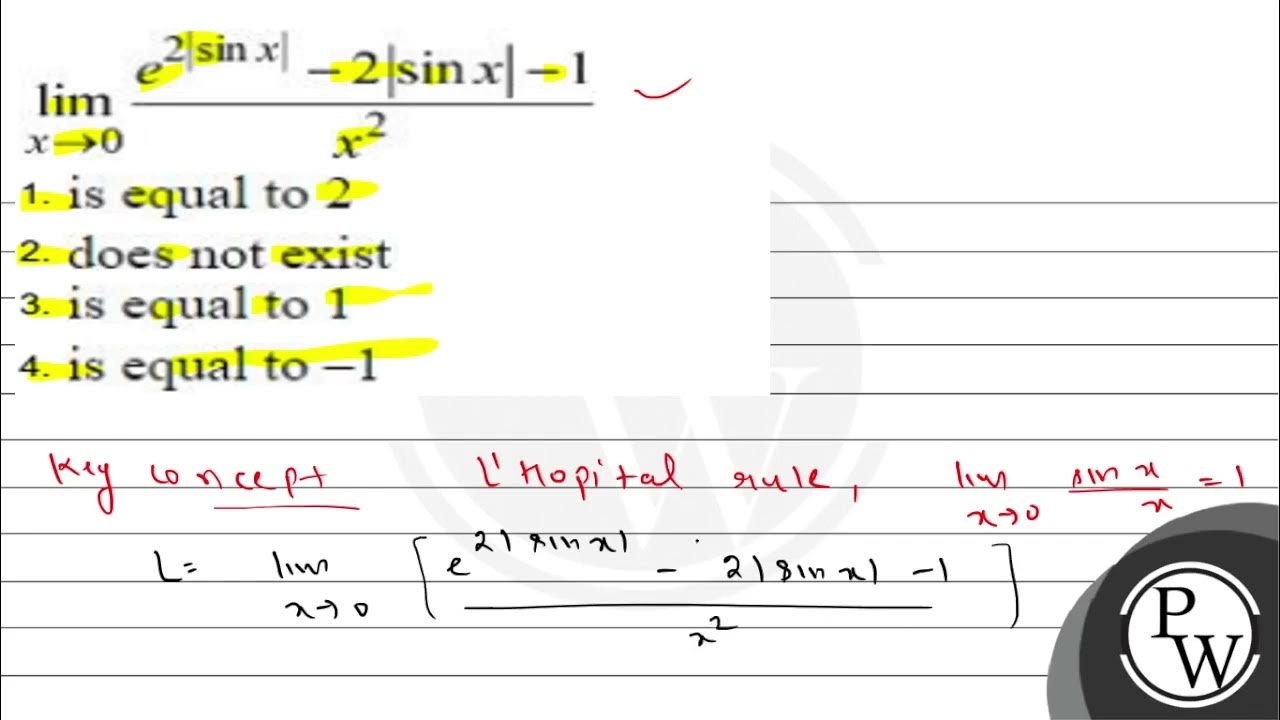 lim x→0 (e^{2|sin x|} − 2|sin x| − 1) / x²
1. is equal to 2
2. does not exist
3. is equal to 1
4. is equal to −1
Key concept L'Hopital rule, lim x→0 sin x / x = 1
L = lim x→0 [ (e^{2|sin x|} − 2|sin x| − 1) / x² ]
P
W